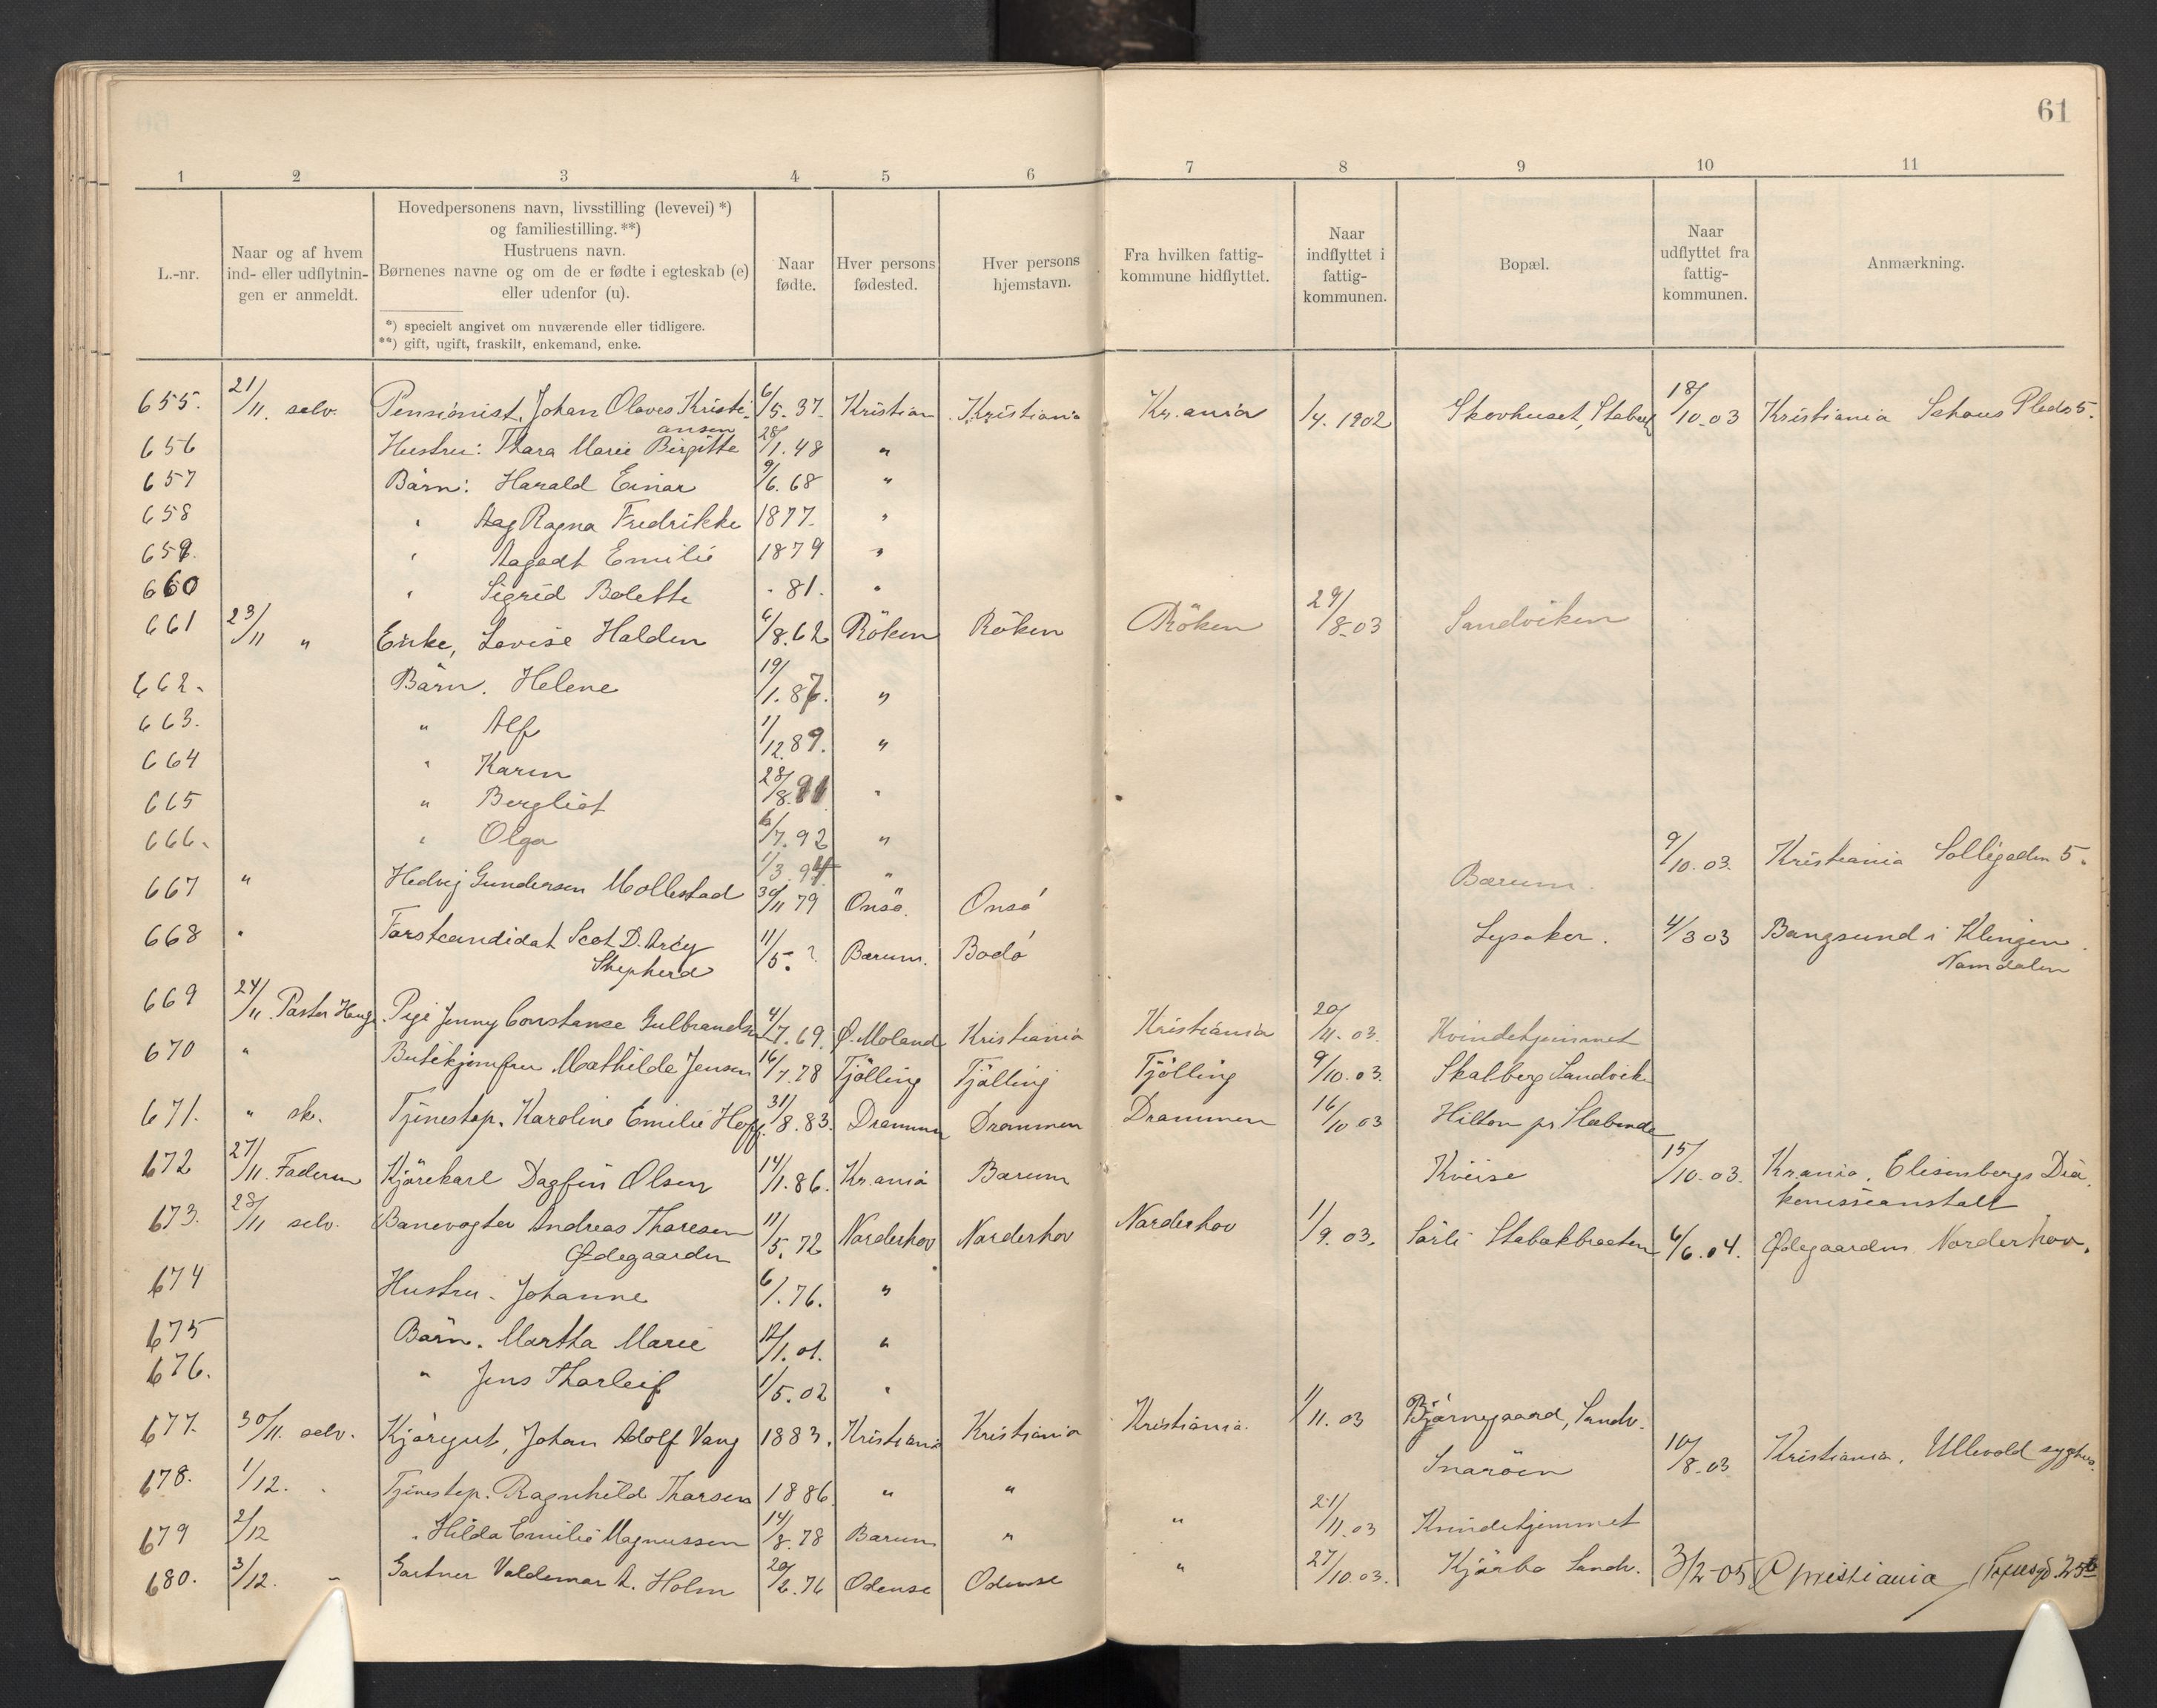 61
1 2 3 4 5 6 7 8 9 10 11
L.-nr.
Naar og af hvem
ind- eller udflytnin-
gen er anmeldt.
Hovedpersonens navn, livsstilling (levevei) *)
og familiestilling. **)
Hustruens navn.
Børnenes navne og om de er fødte i egteskab (e)
eller udenfor (u).
*) specielt angivet om nuværende eller tidligere.
**) gift, ugift, fraskilt, enkemand, enke.
Naar
fødte.
Hver persons
fødested.
Hver persons
hjemstavn.
Fra hvilken fattig-
kommune hidflyttet.
Naar
indflyttet i
fattig-
kommunen.
Bopæl.
Naar
udflyttet fra
fattig-
kommunen.
Anmærkning.
655. 21/11. selv. Pensionist, Johan Olaves Kristi- 6/5. 37. Kristian Kristiania Kr.ania 1/4. 1902 Skovhuset, Stabæk 18/10.03 Kristiania Schous Plads 5.
ansen
656 Hustru: Thara Marie Birgitte 28/1. 48 "
657 Børn: Harald Einar 9/6. 68 "
658 " Ragna Fredrikke 1877. "
659. " Aagodt Emilie 1879 "
660 " Sigrid Bolette - 81. "
661 23/11 " Enke, Lovise Halden 6/8.62 Röken Röken Röken 29/8.03 Sandviken
662. Børn. Helene 19/1.87. "
663. " Alf 1/12.89. "
664 " Karen 28/8.91 "
665 " Bergliot 6/7.92 "
666. " Olga 1/3.94 "
667 " Hedvig Gundersen Mollestad 30/11 79 Onsö. Onsö Bærum. 9/10.03. Kristiania Solligaden 5.
668 " Forstcandidat Scot D. Arcy 11/5. ? Bærum. Bodö Lysaker. 4/3 03 Bangsund i Klingen.
Shepherd Namdalen
669 24/11. Pastor Hauge Pige Jenny Constanse Gulbrandsen 4/7.69. Ø. Moland Kristiania Kristiania 20/11.03. Kvindehjemmet
670 " Butikjomfru Mathilde Jensen 16/7.78 Tjölling Tjölling Tjölling 9/10.03. Skalberg Sandvik
671. " sk. Tjenestep. Karoline Emilie Hoff. 31/8.83. Drammen Drammen Drammen 16/10 03 Hilton pr Slæbende
672 27/11. Faderen Kjörekarl Dagfin Olsen 14/1.86. Kr.ania Bærum Kveise 15/10.03. Kr.ania. Elisenbergs Dia-
konisseanstalt
673. 28/11 selv. Banevogter Andreas Thoresen 11/5. 72 Norderhov Norderhov Norderhov 1/9.03. Sörli Stabækbraaten 6/6.04. Ødegaarden Norderhov.
Ødegaarden
674 Hustru. Johanne 6/.76. "
675 Børn. Martha Marie 12/1.01. "
676. " Jens Tharleif 1/5.02 "
677. 30/11. selv. Kjöregut, Johan Adolf Vang 1883. Kristiania Kristiania Kristiania. 1/11.03 Bjørnegaard, Sandv.
678. 1/12. " Tjenestep. Ragnhild Thorsen 1886. " " Snaröen 10/8.03 Kristiania. Ullevold sygehus.
679 2/12 " Hilda Emilie Magnussen 14/8.78 Bærum " " 21/11.03 Kvindehjemmet
680. 3/12. " Gartner Valdemar A. Holm 20/2.76 Odense Odense " 27/10.03. Kjørbo Sandv. 3/2-05 Christiania